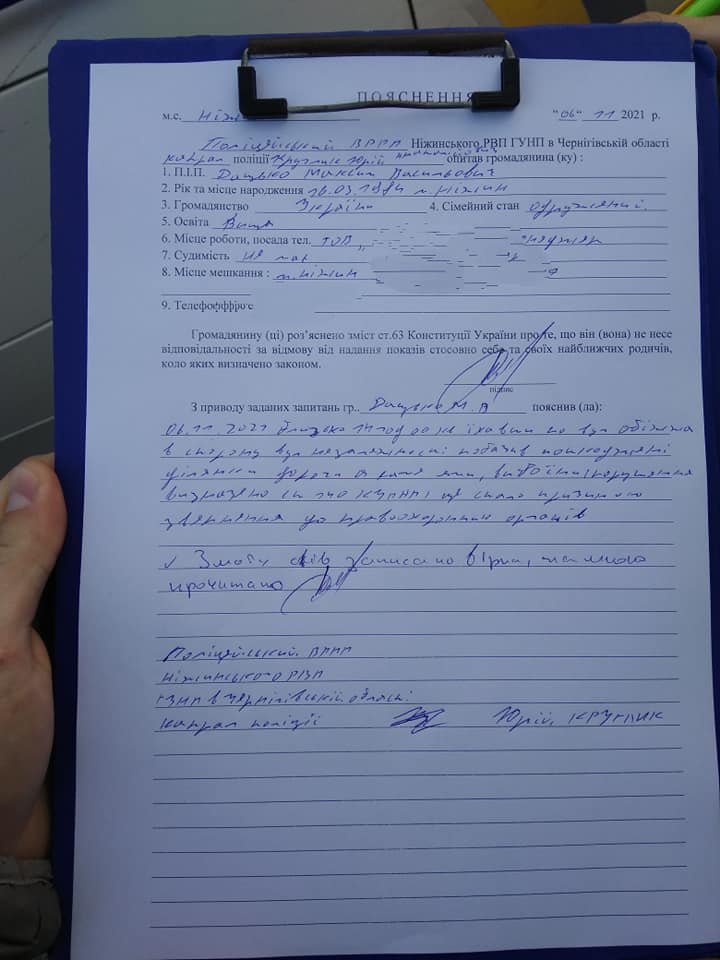 ПОЯСНЕННЯ
м.с. Ніжин "06" 11 2021 р.
Поліцейський ВРПП Ніжинського РВП ГУНП в Чернігівській області
капрал поліції Круглик Юрій опитав громадянина (ку) :
1. П.І.П. Дацько Максим Васильович
2. Рік та місце народження 16.03.1984 м. Ніжин
3. Громадянство Україна 4. Сімейний стан одружений.
5. Освіта Вища
6. Місце роботи, посада тел. ТОВ
7. Судимість не має
8. Місце мешкання : м. Ніжин
9. Телефон
Громадянину (ці) роз'яснено зміст ст.63 Конституції України про те, що він (вона) не несе
відповідальності за відмову від надання показів стосовно себе та своїх найближчих родичів,
коло яких визначено законом.
підпис
З приводу заданих запитань гр.. Дацько М.В пояснив (ла):
06.11.2021 близько їхавши по вул
в сторону вул незалежності побачив пошкоджені
ділянки дороги а саме ями, вибоїни
це стало причиною
звернення до правоохоронних органів
✓ З моїх слів записано вірно, та мною
прочитано
Поліцейський ВРПП
Ніжинського РВП
ГУНП в Чернігівській області
капрал поліції Юрій КРУГЛИК